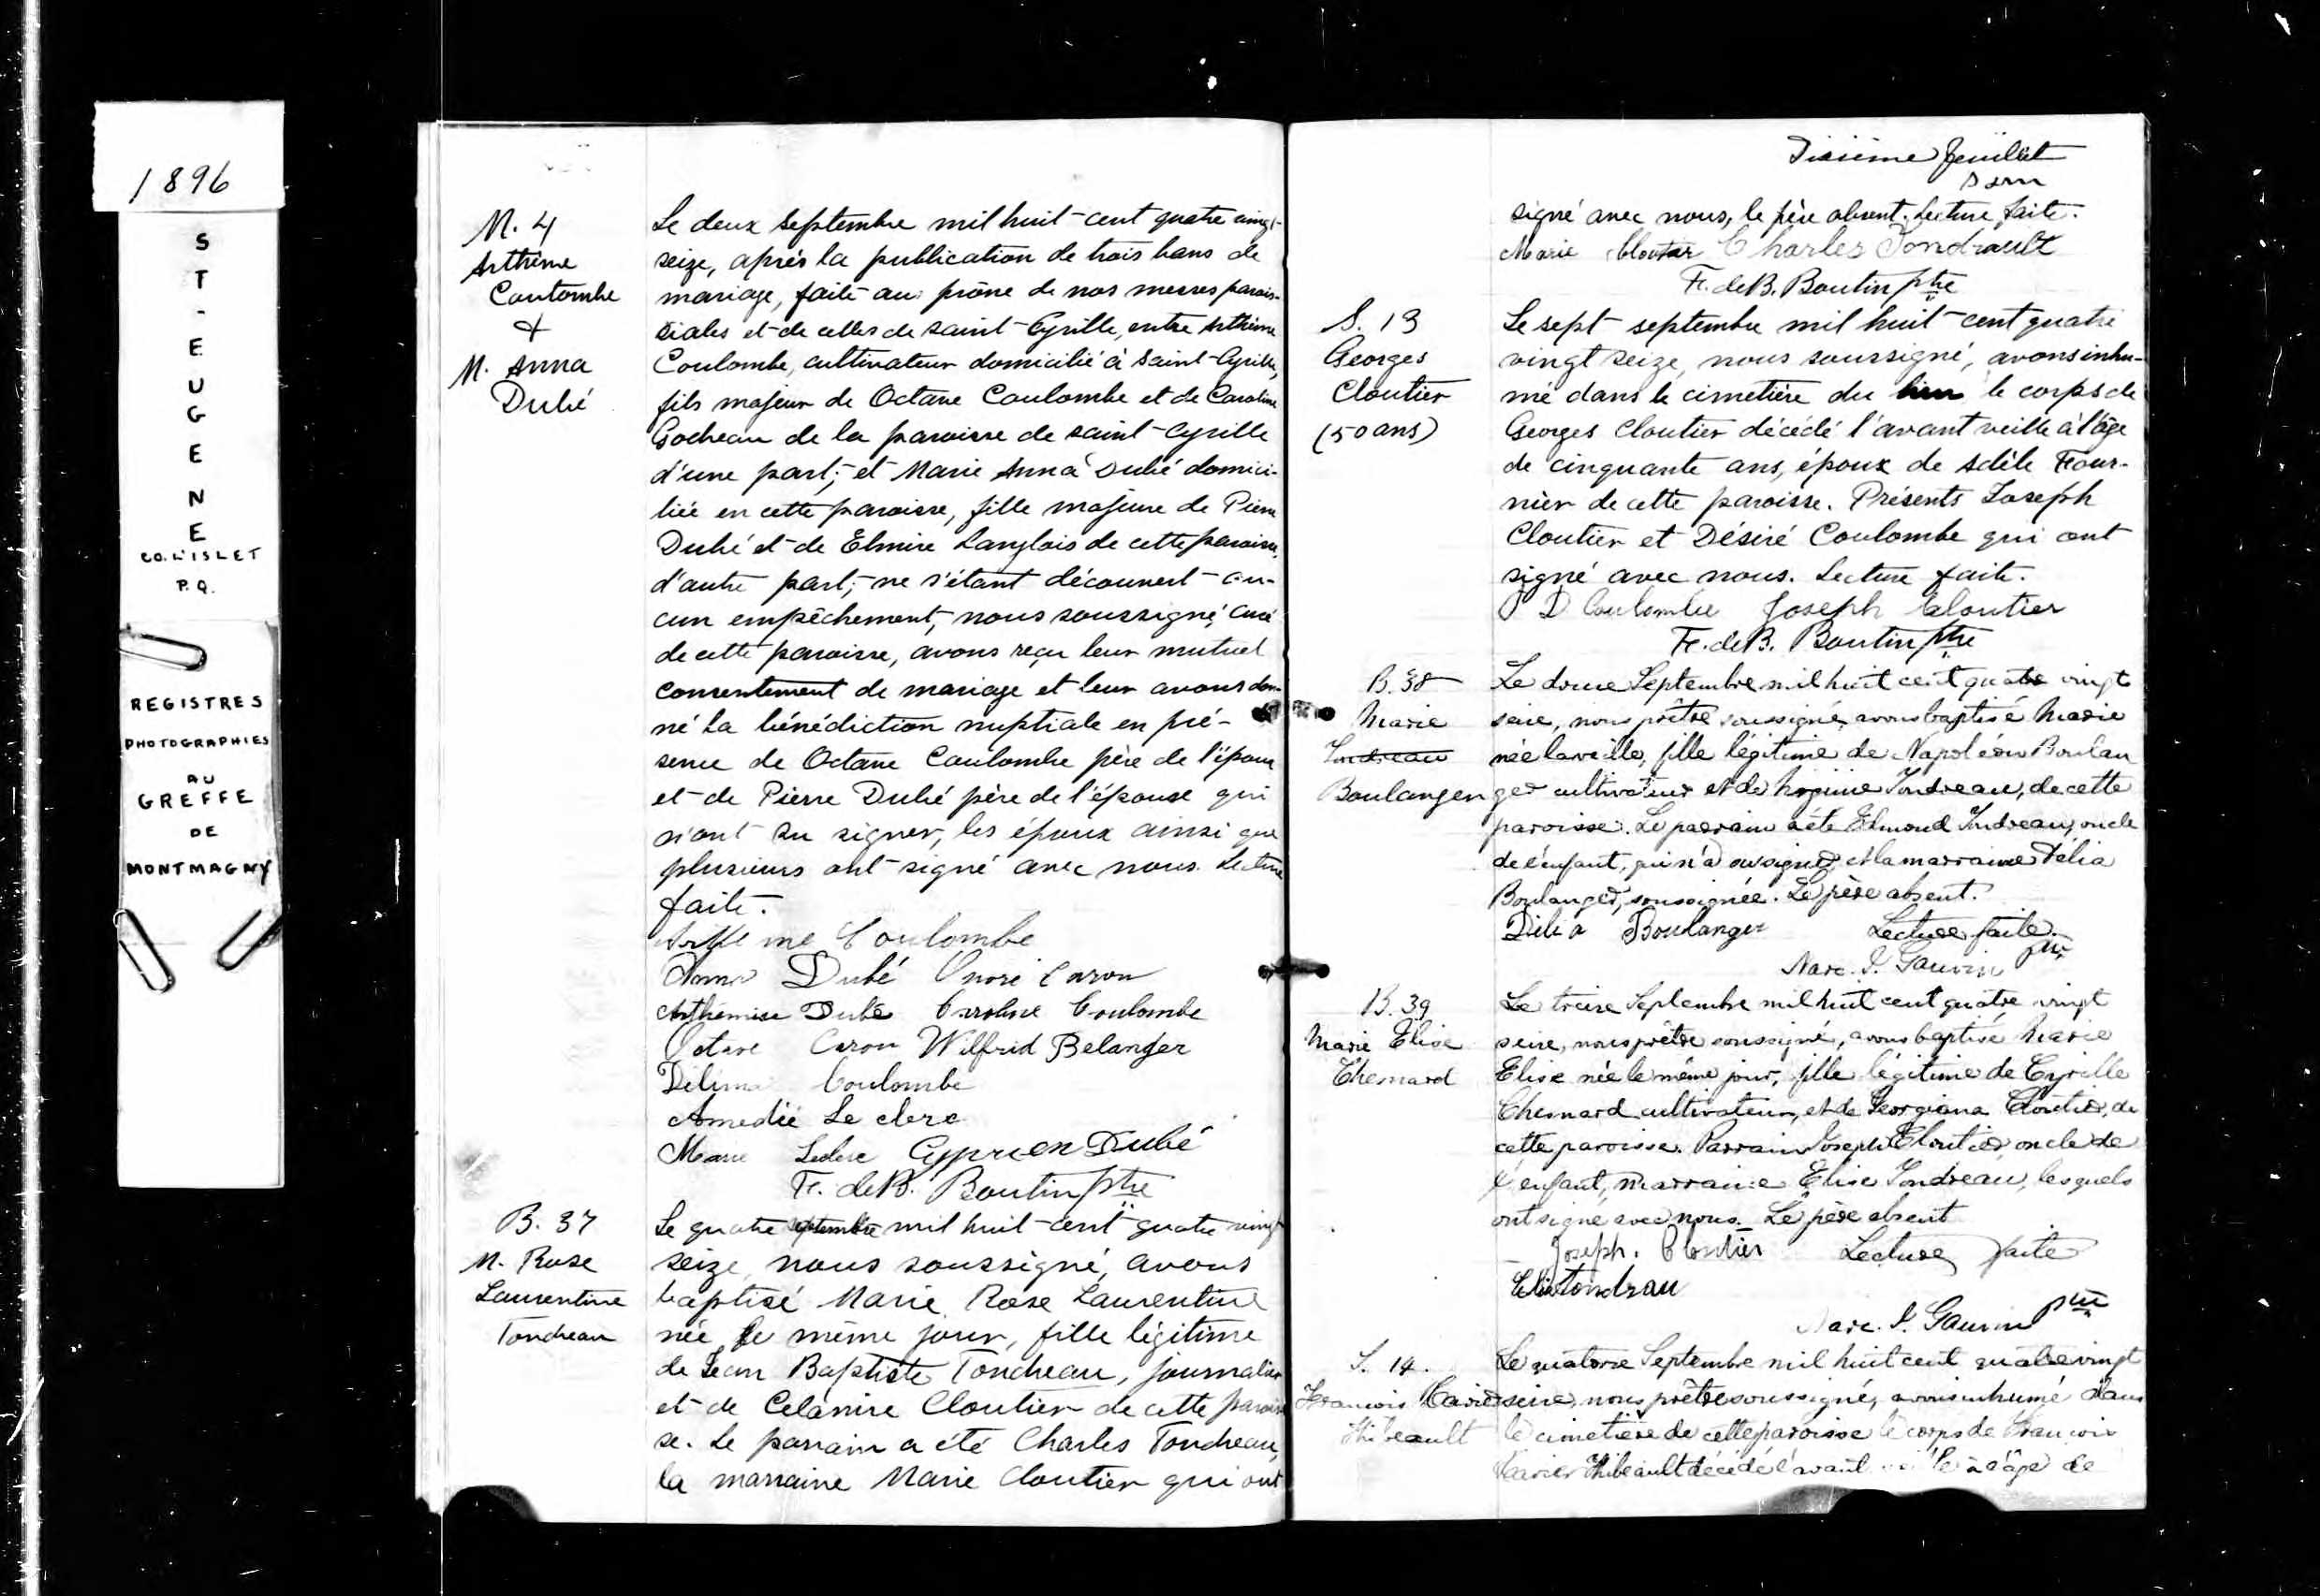 1896
ST-EUGENE
CO. L'ISLET
P.Q.
REGISTRES
PHOTOGRAPHIES
AU
GREFFE
DE
MONTMAGNY
M. 4
Arthème
Coulombe
&
M. Anna
Dubé
Le deux septembre mil huit-cent quatre vingt-
seize, après la publication de trois bans de
mariage, faite au prône de nos messes parois-
siales et de celles de saint-Cyrille, entre Arthème
Coulombe, cultivateur domicilié à saint-Cyrille,
fils majeur de Octave Coulombe et de Caroline
Gocheau de la paroisse de saint-Cyrille
d'une part; et Marie Anna Dubé domici-
liée en cette paroisse, fille majeure de Pierre
Dubé et de Elmire Langlois de cette paroisse,
d'autre part; ne s'étant découvert au-
cun empêchement, nous soussigné, curé
de cette paroisse, avons reçu leur mutuel
consentement de mariage et leur avons don-
né la bénédiction nuptiale en pré-
sence de Octave Coulombe père de l'époux
et de Pierre Dubé père de l'épouse qui
n'ont su signer, les époux ainsi que
plusieurs ont signé avec nous. Lecture
faite.
Arthème Coulombe
Anna Dubé Onori Caron
Arthémise Dubé Caroline Coulombe
Octave Caron Wilfrid Belanger
Délima Coulombe
Amedié Le clerc
Marie Leclerc Cyprien Dubé
Fr. de B. Boutin ptre
B. 37
M. Rose
Laurentine
Tondreau
Le quatre septembre mil huit-cent quatre vingt
seize, nous soussigné, avons
baptisé Marie Rose Laurentine
née le même jour, fille légitime
de Jean Baptiste Tondreau, journalier
et de Celanire Cloutier de cette parois
se. Le parrain a été Charles Tondreau,
la marraine Marie Cloutier qui ont
Dixième feuillet
signé avec nous, le père absent. Lecture faite.
Marie Cloutier Charles Tondrault
Fr. de B. Boutin ptre
S. 13
Georges
Cloutier
(50 ans)
Le sept septembre mil huit-cent quatre
vingt seize, nous soussigné, avons inhu-
mé dans le cimetière du lieu le corps de
Georges Cloutier décédé l'avant veille à l'âge
de cinquante ans, époux de Adèle Four-
nier de cette paroisse. Présents Joseph
Cloutier et Désiré Coulombe qui ont
signé avec nous. Lecture faite.
D Coulombe Joseph Cloutier
Fr. de B. Boutin ptre
B. 38
Marie
Tondreau
Boulanger
Le douze Septembre mil huit cent quatre vingt
seize, nous prêtre soussigné, avons baptisé Marie
née la veille, fille légitime de Napoléon Boulan
ger cultivateur et de Tondreau, de cette
paroisse. Le parrain a été Edmond Tondreau, oncle
de l'enfant, qui n'a su signer, et la marraine Délia
Boulanger, soussignée. Le père absent.
Délia Boulanger Lecture faite.
Narc. J. Gauvin ptre
B. 39
Marie Elise
Chemard
Le treize Septembre mil huit cent quatre vingt
seize, nous prêtre soussigné, avons baptisé Marie
Elise née le même jour, fille légitime de Cyrille
Chemard cultivateur, et de Georgiana Cloutier, de
cette paroisse. Parrain Joseph Cloutier, oncle de
l'enfant, marraine Elise Tondreau, lesquels
ont signé avec nous. Le père absent
Joseph. Cloutier Lecture faite
Elise Tondreau
Narc. J. Gauvin ptre
S. 14.
Francois Xavier
Thibeault
Le quatorze Septembre mil huit cent quatre vingt
seize, nous prêtre soussigné, avons inhumé dans
le cimetière de cette paroisse le corps de Francois
Xavier Thibeault décédé l'avant veille à l'âge de